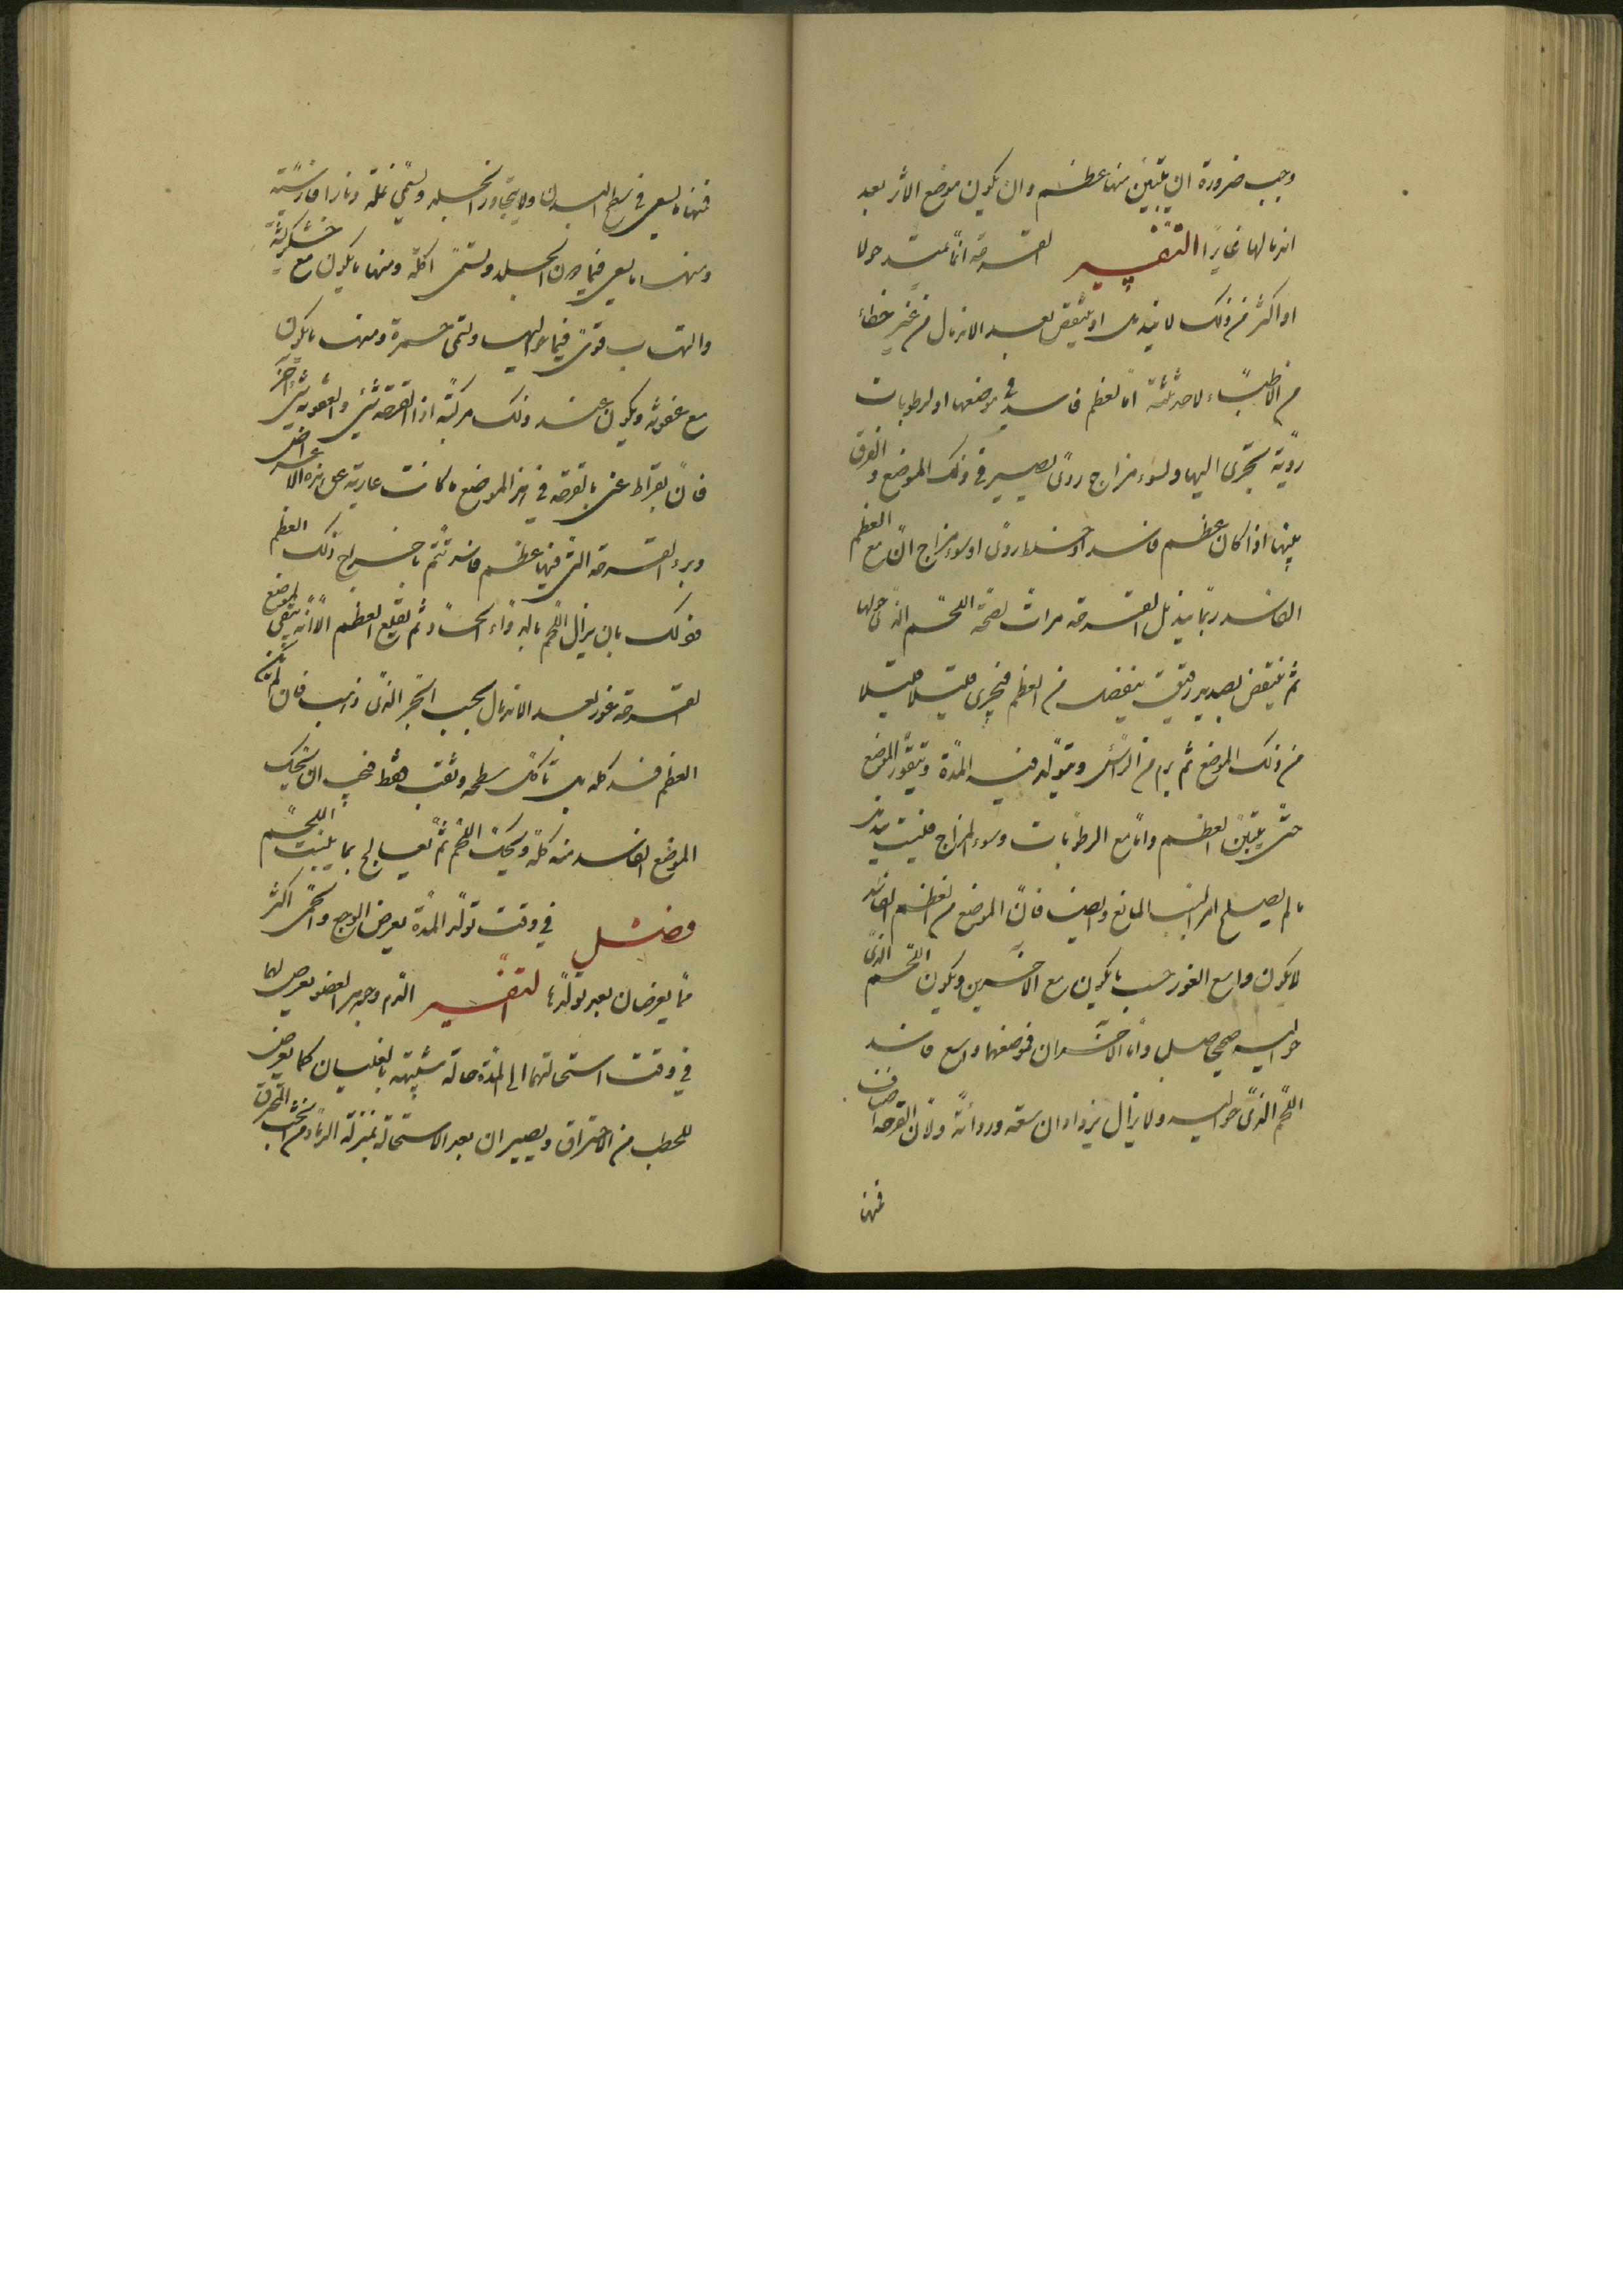 وجب ضرورة ان يتبين منها عظم وان يكون موضع الاثر بعد
اندمالها غايرا التفسير القرحة انما تمتد حولا
او اكثر من ذلك لا يندمل او ينتقض بعد الاندمال من غير خطاء
من الاطباء لاحد ثلثة اما لعظم فاسد في موضعها او لرطوبات
ردية تجرى اليها او لسوء مزاج ردى يصير في ذلك الموضع والفرق
بينها اذا كان عظم فاسد او خلط ردى او سوء مزاج ان مع العظم
الفاسد ربما يندمل القرحة مرات لصحة اللحم الذى حولها
ثم ينتقض بصديد رقيق ينفصل من العظم فيجرى قليلا قليلا
من ذلك الموضع ثم يرم من الراس ويتولد فيه المدة ويتقور الموضع
حتى يتبين العظم واما مع الرطوبات وسوء المزاج فليست يندمل
ما لم يصلح امر السبب المانع وايضا فان الموضع من العظم الفاسد
لا يكون واسع الغور حسب ما يكون مع الاخرين ويكون اللحم الذى
حواليه صحيح صلب واما الاخران فموضعهما واسع فاسد
اللحم الذى حواليه ولا يزال يزدادان سعة ورداءة ولان القرحة اصناف
فمنها
فمنها ما يسعى في سطح البدن ولا يتجاوز الجلد ويسمى نملة ونارا فارسية
ومنها ما يسعى فيما دون الجلد ويسمى اكلة ومنها ما يكون مع خشكريشة
والتهاب قوى فيما حواليها ويسمى جمرة ومنها ما يكون
مع عفونة ويكون عند ذلك مركبة اذ القرحة شئ والعفونة شئ اخر
فان بقراط عنى بالقرحة في هذا الموضع ما كانت عارية عن هذه الاعراض
وبرء القرحة التى فيها عظم فاسد تتم باخراج ذلك العظم
وذلك بان يزال اللحم بالدواء الحاد ثم يقلع العظم الا انه يبقى لموضع
القرحة غور بعد الاندمال بحسب الجزء الذى ذهب فان لم يكن
العظم فسد كله بل تاكل سطحه وثقب فقط فيجب ان يحك
الموضع الفاسد منه كله ويحك العظم ثم يعالج بما ينبت اللحم
فصل في وقت تولد المدة يعرض الوجع والحمى اكثر
مما يعرضان بعد تولدها التفسير الدم وجوهر العضو يعرض لهما
في وقت استحالتهما الى المدة حالة شبيهة بالغليان كما يعرض
للحطب من الاحتراق ويصيران بعد الاستحالة بمنزلة الرماد من الخشب المحترق